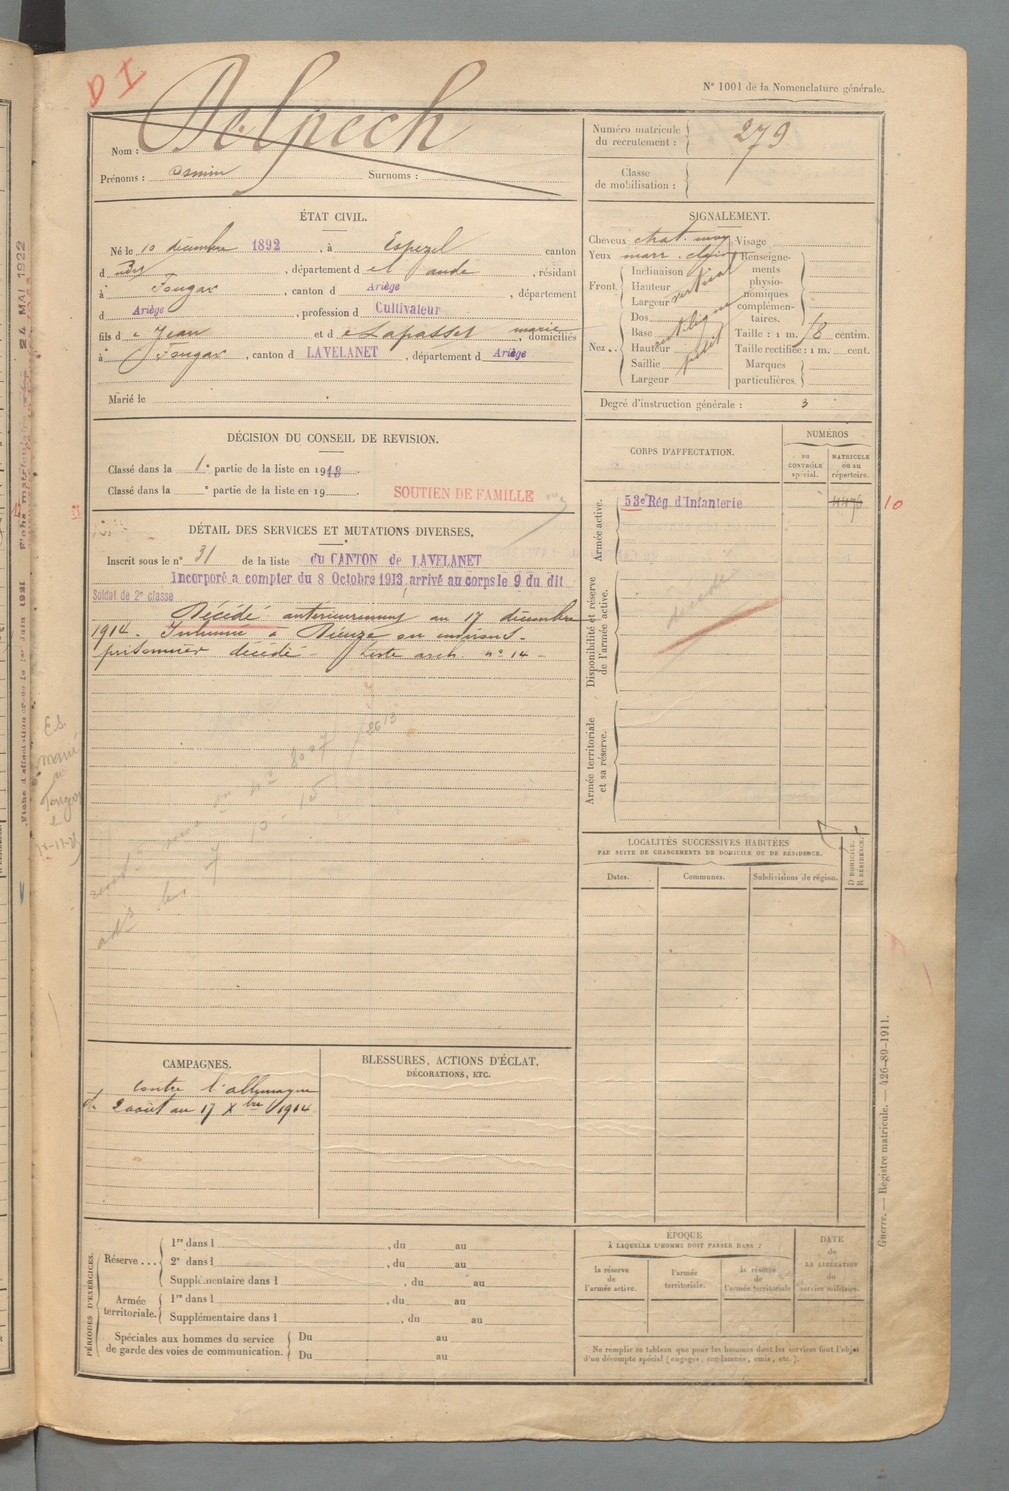 D I
N° 1001 de la Nomenclature générale.
Nom : Delpech
Prénoms : Osmin Surnoms :
Numéro matricule du recrutement : 279
Classe de mobilisation :
ÉTAT CIVIL.
Né le 10 décembre 1892, à Espezel canton
d , département d el aude, résidant
à Fougax, canton d Ariège, département
d Ariège, profession d Cultivateur
fils d e Jean et d e Lapasset marie domiciliés
à Fougax, canton d LAVELANET, département d Ariège
Marié le
SIGNALEMENT.
Cheveux chat. moy Visage
Yeux marr. clair
Front. Inclinaison vertical
Hauteur
Largeur
Nez.. Dos
Base
Hauteur
Saillie petit
Largeur
Renseignements physionomiques complémentaires.
Taille : 1 m. 58 centim.
Taille rectifiée : 1 m. cent.
Marques particulières.
Degré d'instruction générale : 3
DÉCISION DU CONSEIL DE REVISION.
Classé dans la 1e partie de la liste en 1913.
Classé dans la e partie de la liste en 19 .
SOUTIEN DE FAMILLE
DÉTAIL DES SERVICES ET MUTATIONS DIVERSES.
Inscrit sous le n° 31 de la liste du CANTON de LAVELANET
Incorporé a compter du 8 Octobre 1913, arrivé au corps le 9 du dit
Soldat de 2e classe
Décédé antérieurement au 17 décembre
1914. Inhumé à Dieuze ou environs.
prisonnier décédé - Liste arch. n° 14 -
CORPS D'AFFECTATION.
NUMÉROS
DU CONTRÔLE spécial.
MATRICULE ou au répertoire.
Armée active.
53e Rég. d'Infanterie
10
Disponibilité et réserve de l'armée active.
décédé
Armée territoriale et sa réserve.
LOCALITÉS SUCCESSIVES HABITÉES
PAR SUITE DE CHANGEMENTS DE DOMICILE OU DE RÉSIDENCE.
Dates. Communes. Subdivisions de région. D DOMICILE. R RÉSIDENCE.
CAMPAGNES.
Contre l'allemagne
du 2 août au 17 Xbre 1914
BLESSURES, ACTIONS D'ÉCLAT,
DÉCORATIONS, ETC.
PÉRIODES D'EXERCICES.
Réserve... 1re dans l , du au
2e dans l , du au
Supplémentaire dans l , du au
Armée territoriale. 1re dans l , du au
Supplémentaire dans l , du au
Spéciales aux hommes du service de garde des voies de communication. Du au
Du au
ÉPOQUE
À LAQUELLE L'HOMME DOIT PASSER DANS :
la réserve de l'armée active.
l'armée territoriale.
la réserve de l'armée territoriale
DATE de LA LIBÉRATION du service militaire.
Ne remplir ce tableau que pour les hommes dont les services font l'objet
d'un décompte spécial (engagés, condamnés, omis, etc.).
Guerre. — Registre matricule. — 426-89-1911.
24 MAI 1922